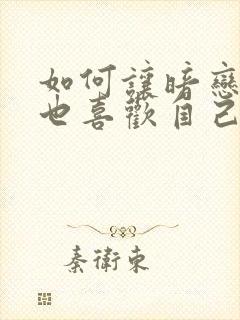 如何讓暗戀
也喜歡自己
秦衛東